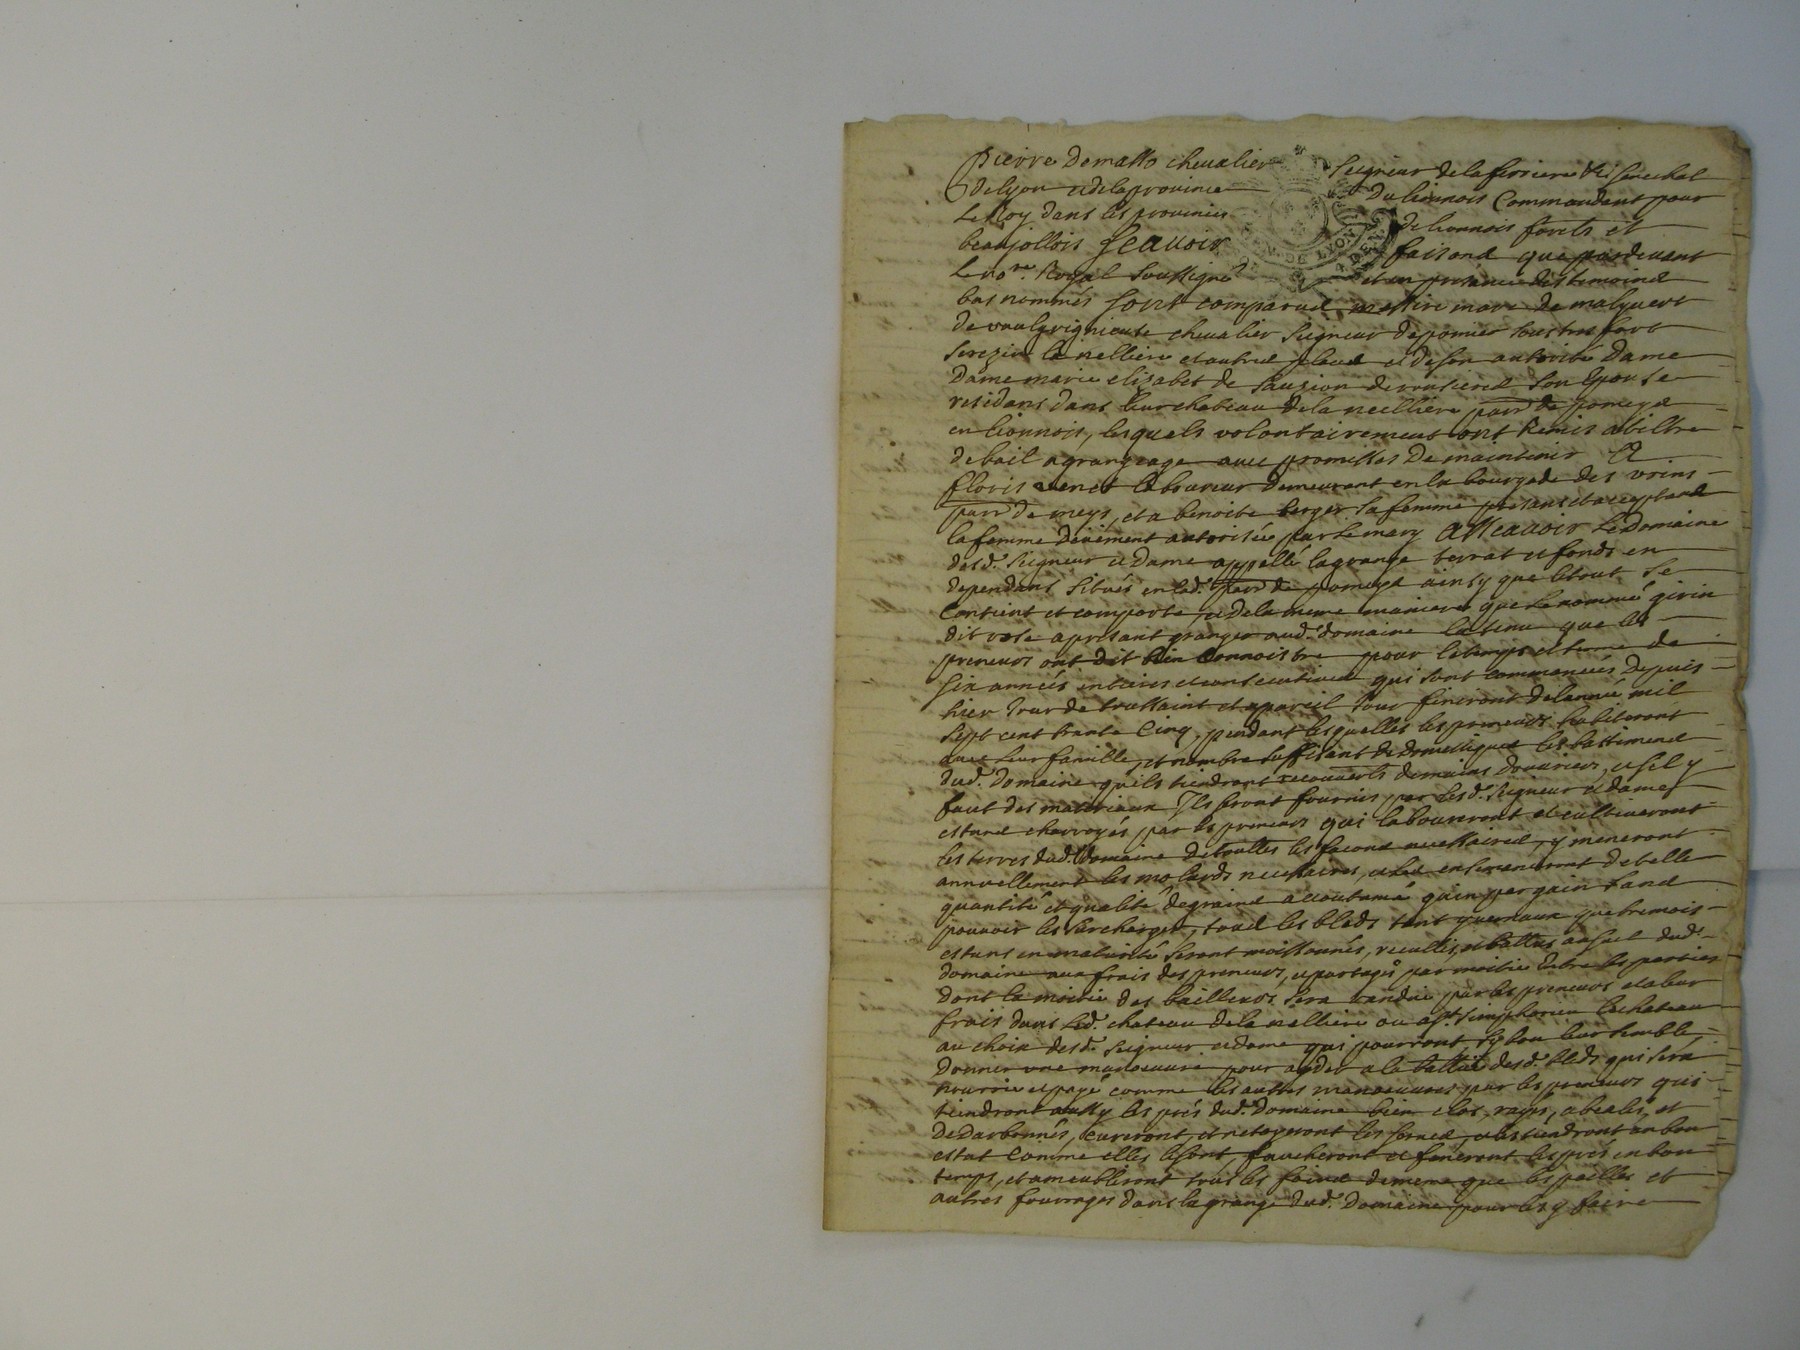 Pierre Demasso chevalier Seigneur de la ferriere &c senechal
de lyon et de la province du lionnois Commandant pour
Le Roy dans les provinces de lionnois forets et
beaujollois Scavoir faisons que pardevant
Le no.re Royal Soussigné et en presance des temoins
bas nommés sont comparus messire marc de malyvert
de chevalier Seigneur de pomier
la nelliere et autres places et de son authorité Dame
Dame marie elizabet de son Epouse
residans dans leur chateau de la neelliere parr de pomeys
en lionnois, lesquels volontairement ont Remis a tiltre
de bail a grangeage avec promesses De maintenir A
floris venet laboureur demeurant en la bourgade des
parr de meys, et a benoite berger sa femme presans et acceptans
la femme deüement autorisée par Le mary Asscavoir Le Domaine
desd. Seigneur et Dame appellé lagrange et fonds en
dependans situés en lad. parr de pomeys ainsy que le tout se
Contient et comporte, et de la meme maniere que Le nommé girin
dit apresant granger aud. domaine la tenu que les
preneurs ont dit bien Connoistre pour le temps et terme de
six années entieres et consecutives qui sont commancées depuis
hier Jour de toussaint et a pareil Jour finiront de lannée mil
sept cent trante Cinq, pendant lesquelles les preneurs habiteront
avec Leur famille, et nombre suffisant de domestiques les battimens
dud. Domaine quils tiendront recouverts demains douvriers, et sil y
faut des materiaux Ils seront fournis par lesd. Seigneur et dame
estans charroyés par les preneurs qui laboureront et cultiveront
les terres dud. Domaine de touttes les façons necessaires, y meneront
annuellement les necessaires, et les ensemenceront de telle
quantité et qualité de grains accoutumé gain par gain sans
pouvoir les surcharger, tous les bleds tant yvernaux que tremois
estans en maturité seront moissonnés, receullis, et battus au suel dud.
domaine aux frais des preneurs, et partagés par moitié Entre les parties
Dont la moitié des bailleurs sera randuë par les preneurs et a leur
frais dans Led. chateau de la nelliere ou a st. simphorien le chateau
au choix desd. Seigneur et dame qui pourront sy bon leur semble,
Donner une manoeuvre pour ayder a la battue desd. bleds qui sera
nourrie et payé comme les autres manoeuvres par les preneurs qui
tiendront aussy les prés dud. Domaine bien clos, rayés, et
Dedarbonnés, Cureront, et netoyeront les serves, et les tiendront en bon
estat Comme elles le sont, faucheront et feneront les prés en bon
temps, et ameubliront tous les foins de meme que les pailles et
autres fourrages dans la grange dud. Domaine pour les y faire